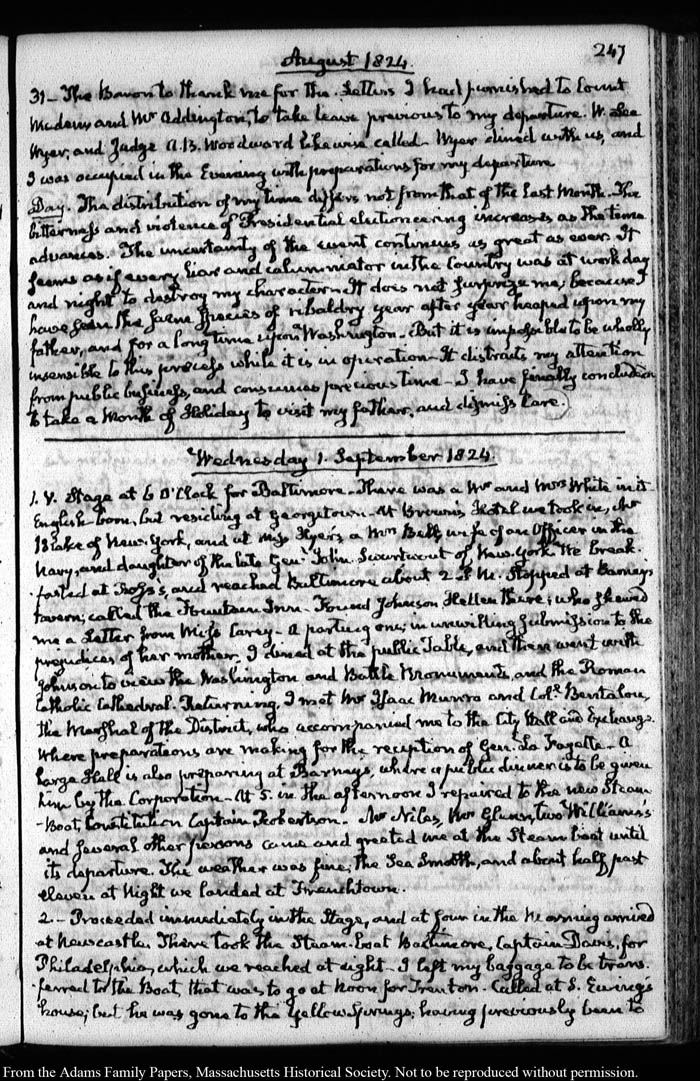 247
August 1824.
31 – The Baron to thank me for the Letters I had furnished to Count
Medem and Mr Addington, to take leave previous to my departure. W. Lee
Wyer, and Judge A. B. Woodward likewise called – Wyer dined with us, and
I was occupied in the Evening with preparations for my departure
Day. The distribution of my time differs not from that of the last Month. The
bitterness and violence of Presidential electioneering increases as the time
advances. The uncertainty of the event continues as great as ever. It
seems as if every liar and calumniator in the Country was at work day
and night to destroy my character. It does not surprize me, because I
have seen the same species of ribaldry year after year heaped upon my
father, and for a long time upon Washington – But it is impossible to be wholly
insensible to this process while it is in operation – It distracts my attention
from public business, and consumes precious time – I have finally concluded
to take a Month of Holiday to visit my father, and dismiss Care.
Wednesday 1. September 1824.
1. V. Stage at 6 O'Clock for Baltimore – There was a Mr and Mrs White in it
English born, but residing at Georgetown – At Brown's Hotel we took in, Mr
Blake of New-York, and at Miss Hyer's a Mrs Bell, wife of an Officer in the
Navy, and daughter of the late Genl John Swartwout of New-York. We break-
fasted at Ross's, and reached Baltimore about 2 P.M. Stopped at Barney's
tavern, called the Fountain Inn – Found Johnson Hellen there; who shewed
me a Letter from Miss Carey – A parting one; in unwilling submission to the
prejudices of her mother. I dined at the public Table, and then went with
Johnson to view the Washington and Battle Monuments, and the Roman
Catholic Cathedral. Returning, I met Mr Isaac Munro and Col. Bentalou,
the Marshal of the District, who accompanied me to the City Hall and Exchange.
where preparations are making for the reception of Gen. La Fayette – A
large Hall is also preparing at Barney's, where a public dinner is to be given
him by the Corporation – At 5. in the afternoon I repaired to the new Steam
-Boat, Constitution Captain Robertson – Mr Niles, Mr Glenn, two Williams's
and several other persons came and greeted me at the Steam boat until
its departure. The weather was fine, the Sea Smooth, and about half past
eleven at Night we landed at Frenchtown.
2. – Proceeded immediately in the Stage, and at four in the Morning arrived
at Newcastle. There took the Steam-boat Baltimore, Captain Davis, for
Philadelphia, which we reached at eight – I left my baggage to be trans-
-ferred to the Boat, that was to go at Noon for Trenton – Called at S. Ewing's
house; but he was gone to the Yellow Springs; having previously been to
From the Adams Family Papers, Massachusetts Historical Society. Not to be reproduced without permission.